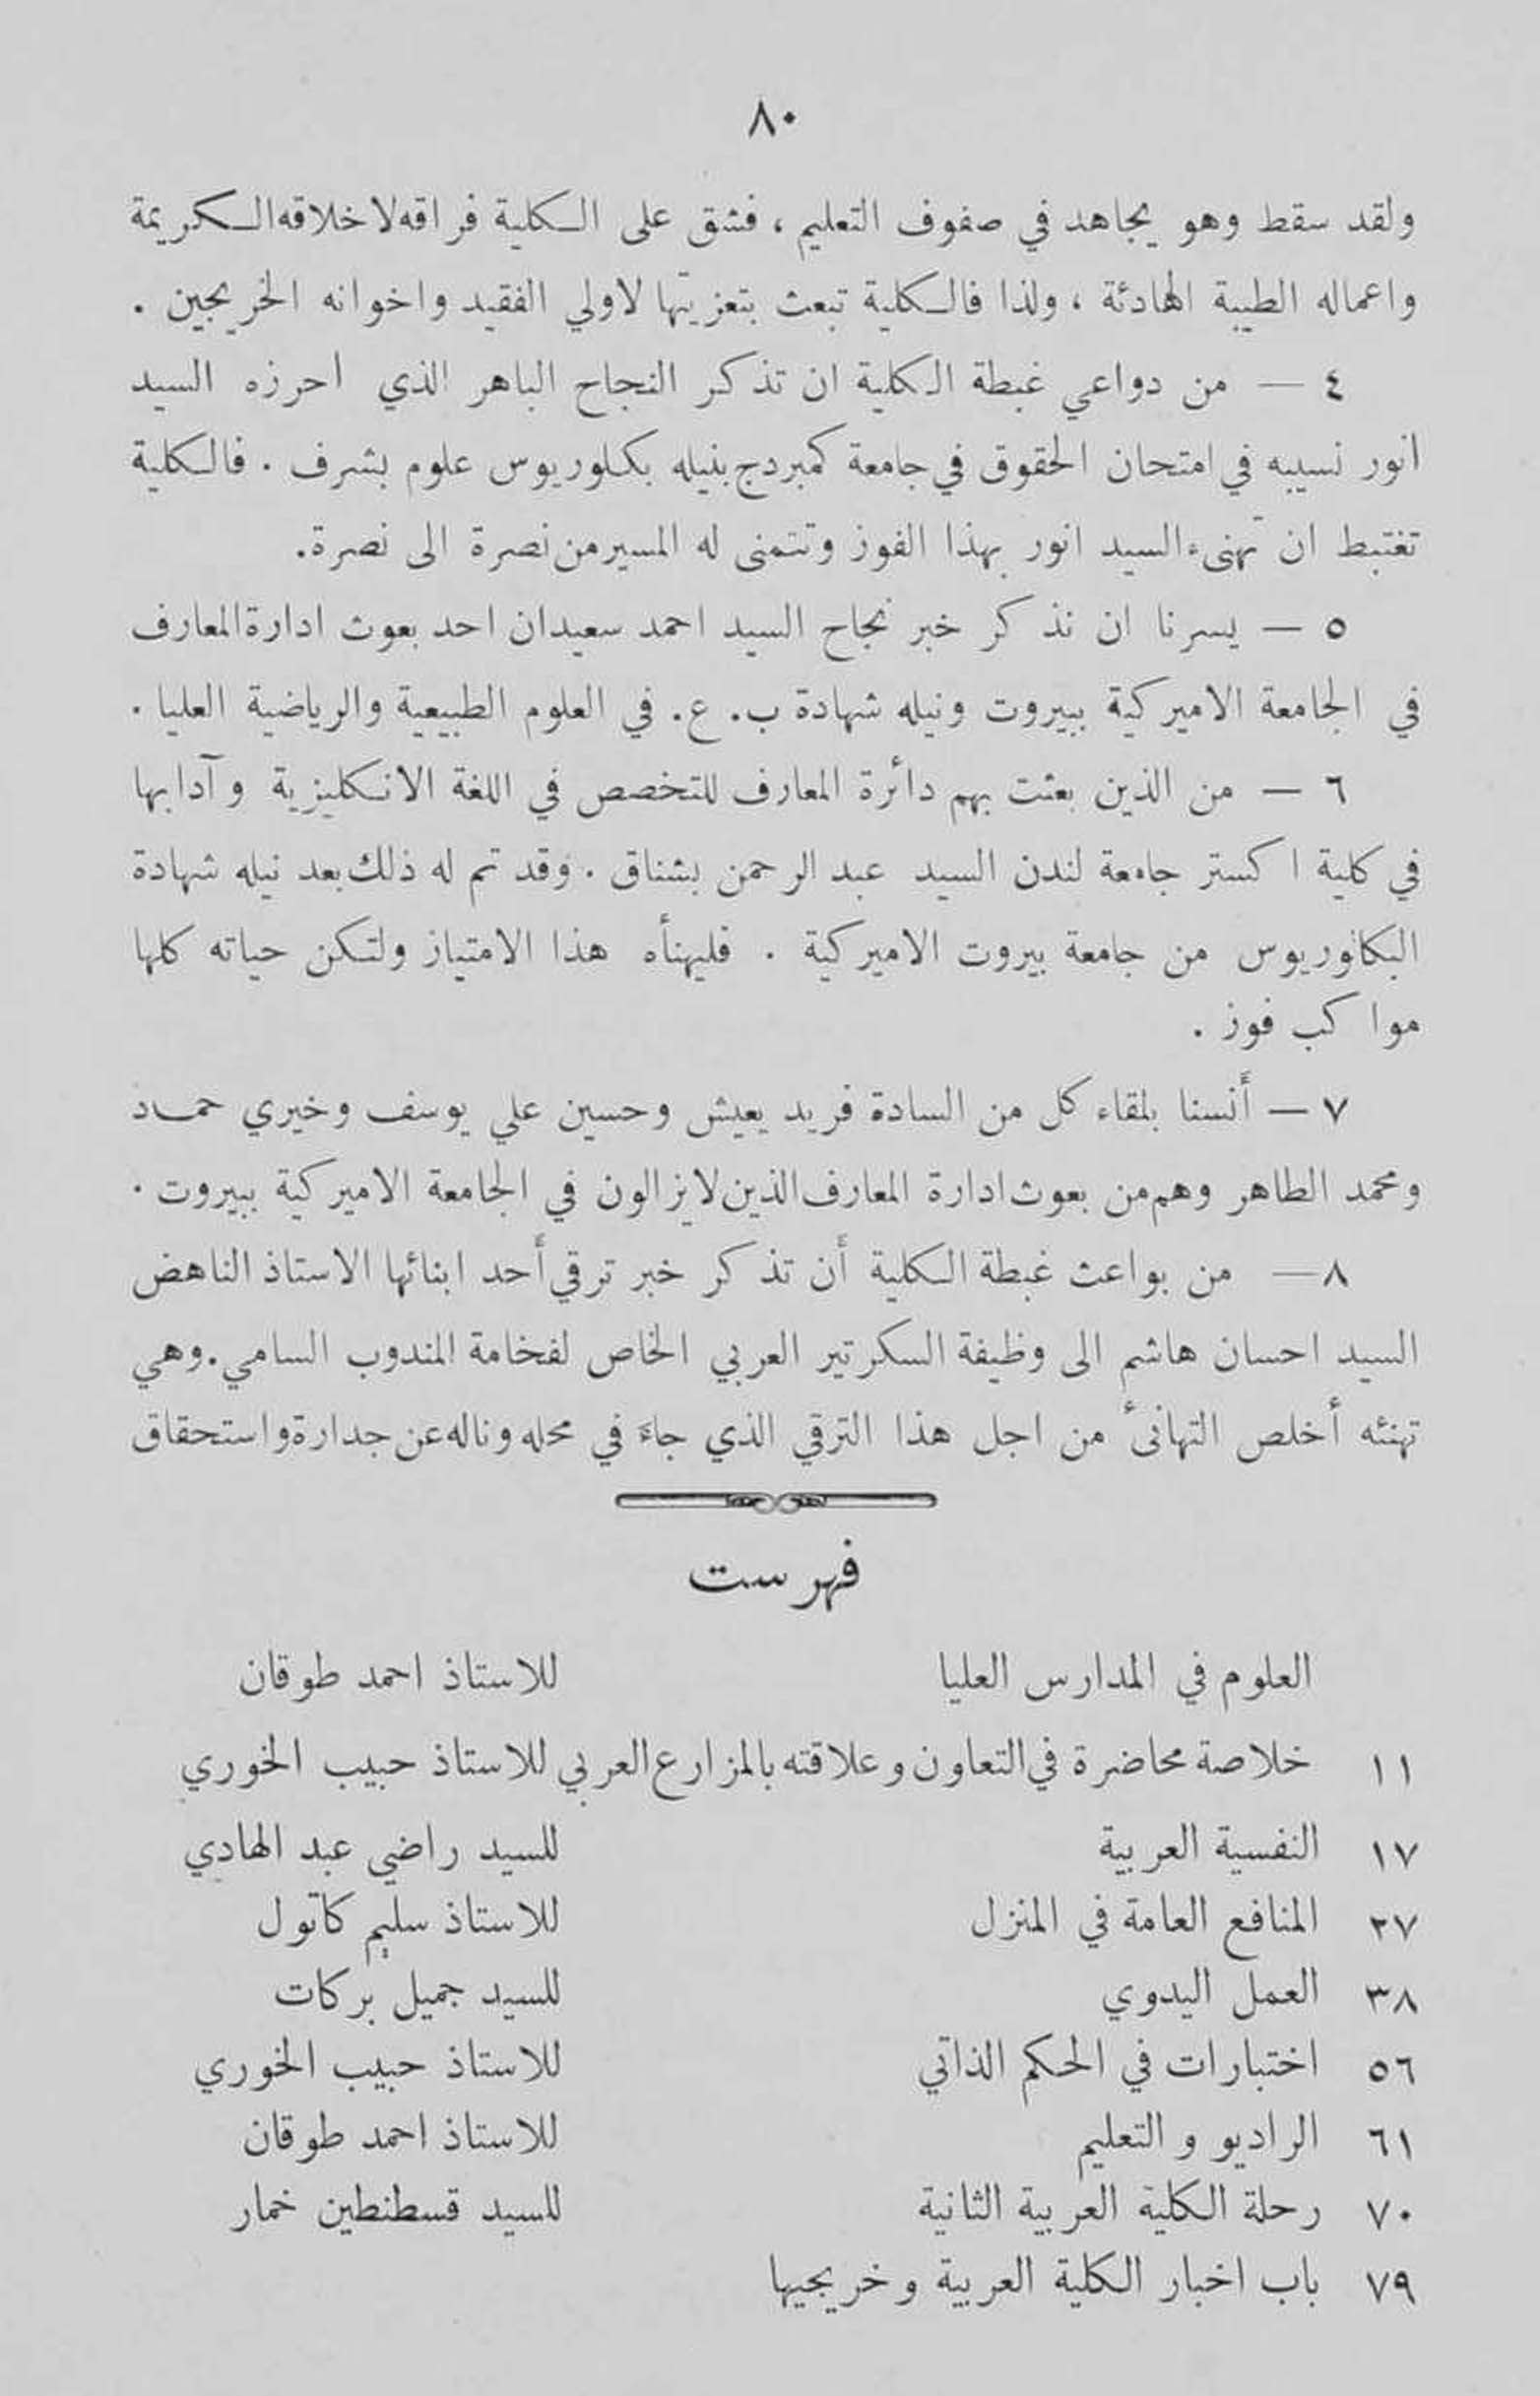 ٨٠
ولقد سقط وهو يجاهد في صفوف التعليم ، فشق على الكلية فراقه لاخلاقه الكريمة
واعماله الطيبة الهادئة ، ولذا فالكلية تبعث بتعزيتها لاولي الفقيد واخوانه الخريجين .
٤ — من دواعي غبطة الكلية ان تذكر النجاح الباهر الذي احرزه السيد
انور نسيبه في امتحان الحقوق في جامعة كمبردج بنيله بكلوريوس علوم بشرف . فالكلية
تغتبط ان تهنىء السيد انور بهذا الفوز وتتمنى له المسير من نصرة الى نصرة.
٥ — يسرنا ان نذكر خبر نجاح السيد احمد سعيدان احد بعوث ادارة المعارف
في الجامعة الاميركية ببيروت ونيله شهادة ب. ع. في العلوم الطبيعية والرياضية العليا .
٦ — من الذين بعثت بهم دائرة المعارف للتخصص في اللغة الانكليزية وآدابها
في كلية اكستر جامعة لندن السيد عبد الرحمن بشناق . وقد تم له ذلك بعد نيله شهادة
البكلوريوس من جامعة بيروت الاميركية . فليهنأه هذا الامتياز ولتكن حياته كلها
مواكب فوز .
٧ — أنسنا بلقاء كل من السادة فريد يعيش وحسين علي يوسف وخيري حمـاد
ومحمد الطاهر وهم من بعوث ادارة المعارف الذين لا يزالون في الجامعة الاميركية ببيروت .
٨ — من بواعث غبطة الكلية أن تذكر خبر ترقي أحد ابنائها الاستاذ الناهض
السيد احسان هاشم الى وظيفة السكرتير العربي الخاص لفخامة المندوب السامي. وهي
تهنئه أخلص التهانئ من اجل هذا الترقي الذي جاء في محله وناله عن جدارة واستحقاق
فهرست
العلوم في المدارس العليا للاستاذ احمد طوقان
١١ خلاصة محاضرة في التعاون وعلاقته بالمزارع العربي للاستاذ حبيب الخوري
١٧ النفسية العربية للسيد راضي عبد الهادي
٢٧ المنافع العامة في المنزل للاستاذ سليم كاتول
٣٨ العمل اليدوي للسيد جميل بركات
٥٦ اختبارات في الحكم الذاتي للاستاذ حبيب الخوري
٦١ الراديو والتعليم للاستاذ احمد طوقان
٧٠ رحلة الكلية العربية الثانية للسيد قسطنطين خمار
٧٩ باب اخبار الكلية العربية وخريجيها